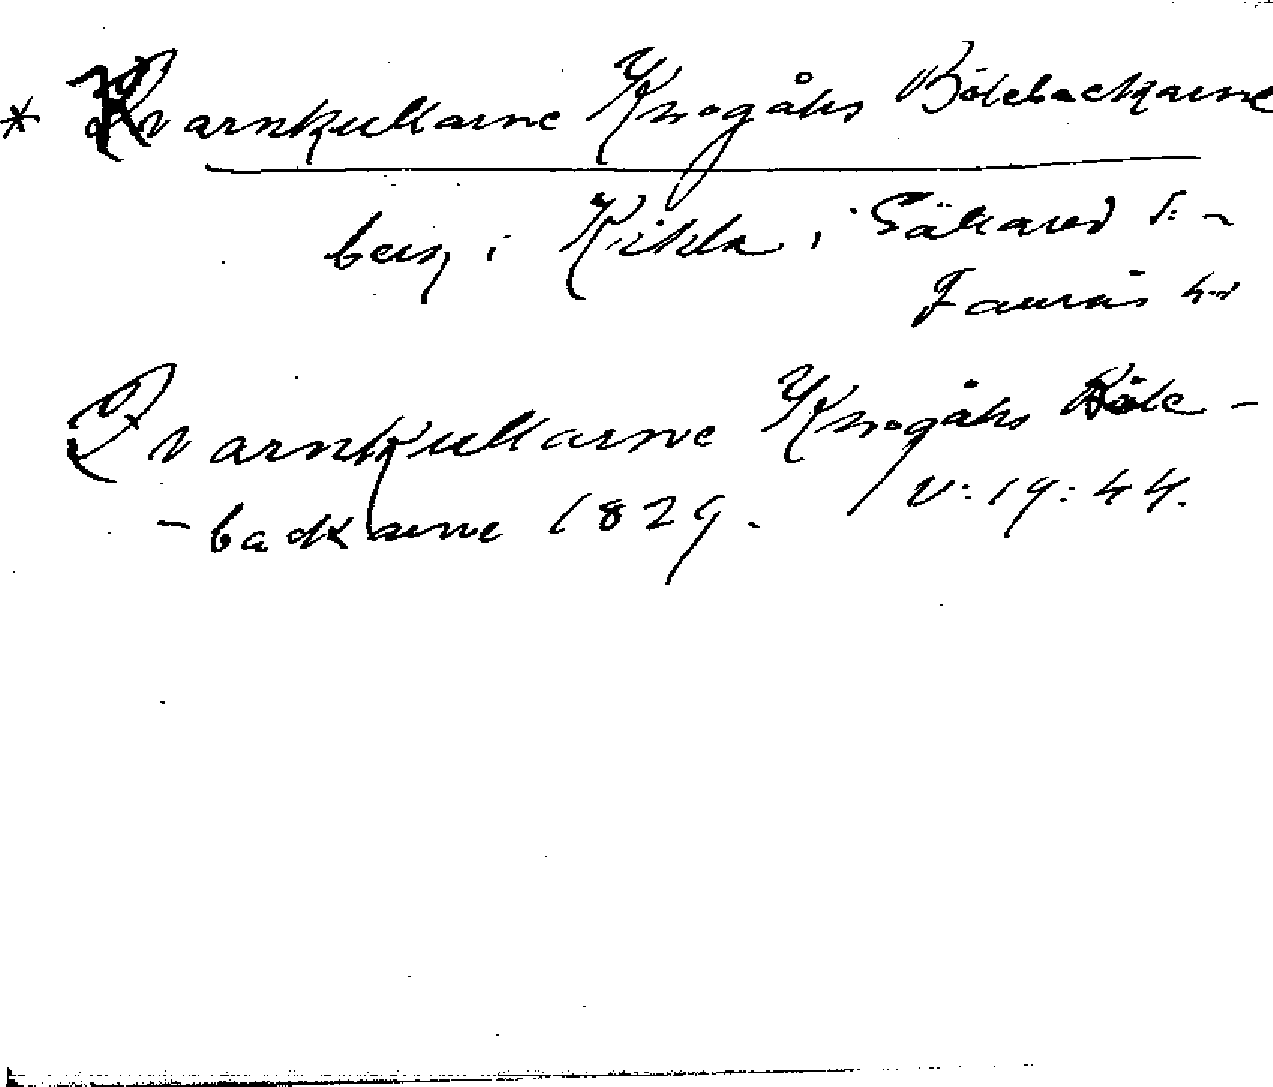 * Kvarnkullarne Knogåhs Bötebackarne
berg i Kikla i Gällared s: -
Faurås hd
Qvarnkullarne Knogåhs Böte -
- backarne 1829. V: 19: 44.